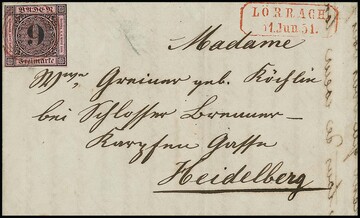 BADEN
9
Freimarke
LÖRRACH
11.Jun 51.
Madame
Wwe Greiner geb. Köchlin
bei Schlosser Brenner-
Karpfen Gasse
Heidelberg